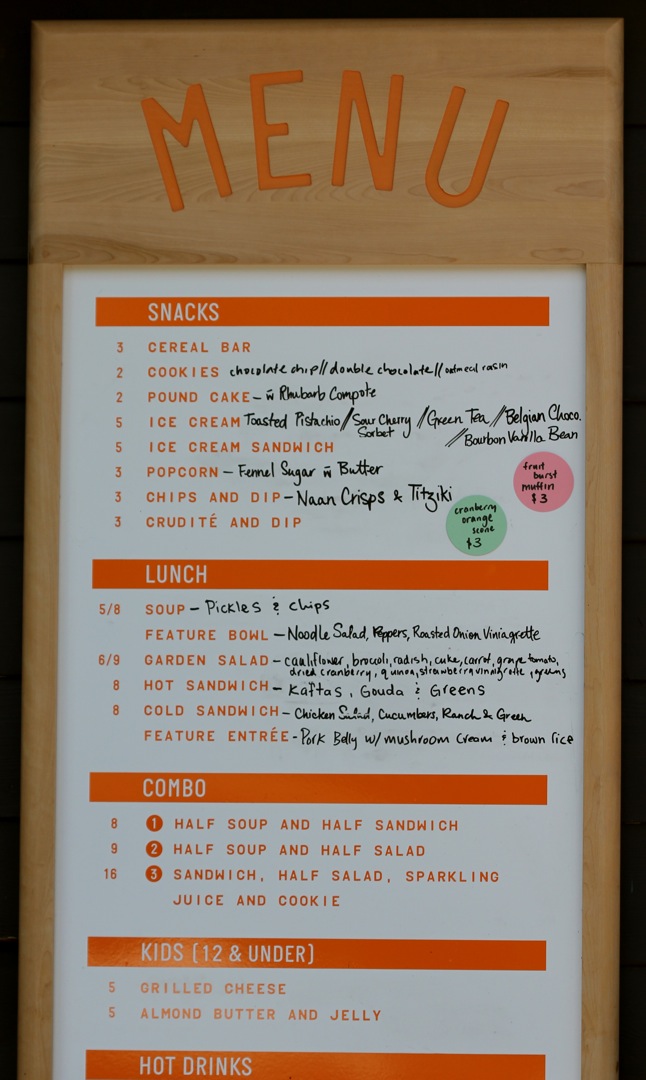 MENU
SNACKS
3 CEREAL BAR
2 COOKIES chocolate chip // double chocolate // oatmeal rasin
2 POUND CAKE - w̄ Rhubarb Compote
5 ICE CREAM Toasted Pistachio / Sour Cherry Sorbet / Green Tea // Belgian Choco.
// Bourbon Vanilla Bean
5 ICE CREAM SANDWICH
3 POPCORN - Fennel Sugar w̄ Butter
3 CHIPS AND DIP - Naan Crisps & Titziki
3 CRUDITÉ AND DIP
fruit
burst
muffin
$3
cranberry
orange
scone
$3
LUNCH
5/8 SOUP - Pickles & chips
FEATURE BOWL - Noodle Salad, Peppers, Roasted Onion Viniagrette
6/9 GARDEN SALAD - cauliflower, brocoli, radish, cuke, carrot, grape tomato,
dried cranberry, quinoa, strawberry vinaigrette, greens
8 HOT SANDWICH - Kaftas, Gouda & Greens
8 COLD SANDWICH - Chicken Salad, Cucumbers, Ranch & Green
FEATURE ENTRÉE - Pork Belly w/ mushroom cream & brown rice
COMBO
8 1 HALF SOUP AND HALF SANDWICH
9 2 HALF SOUP AND HALF SALAD
16 3 SANDWICH, HALF SALAD, SPARKLING
JUICE AND COOKIE
KIDS (12 & UNDER)
5 GRILLED CHEESE
5 ALMOND BUTTER AND JELLY
HOT DRINKS